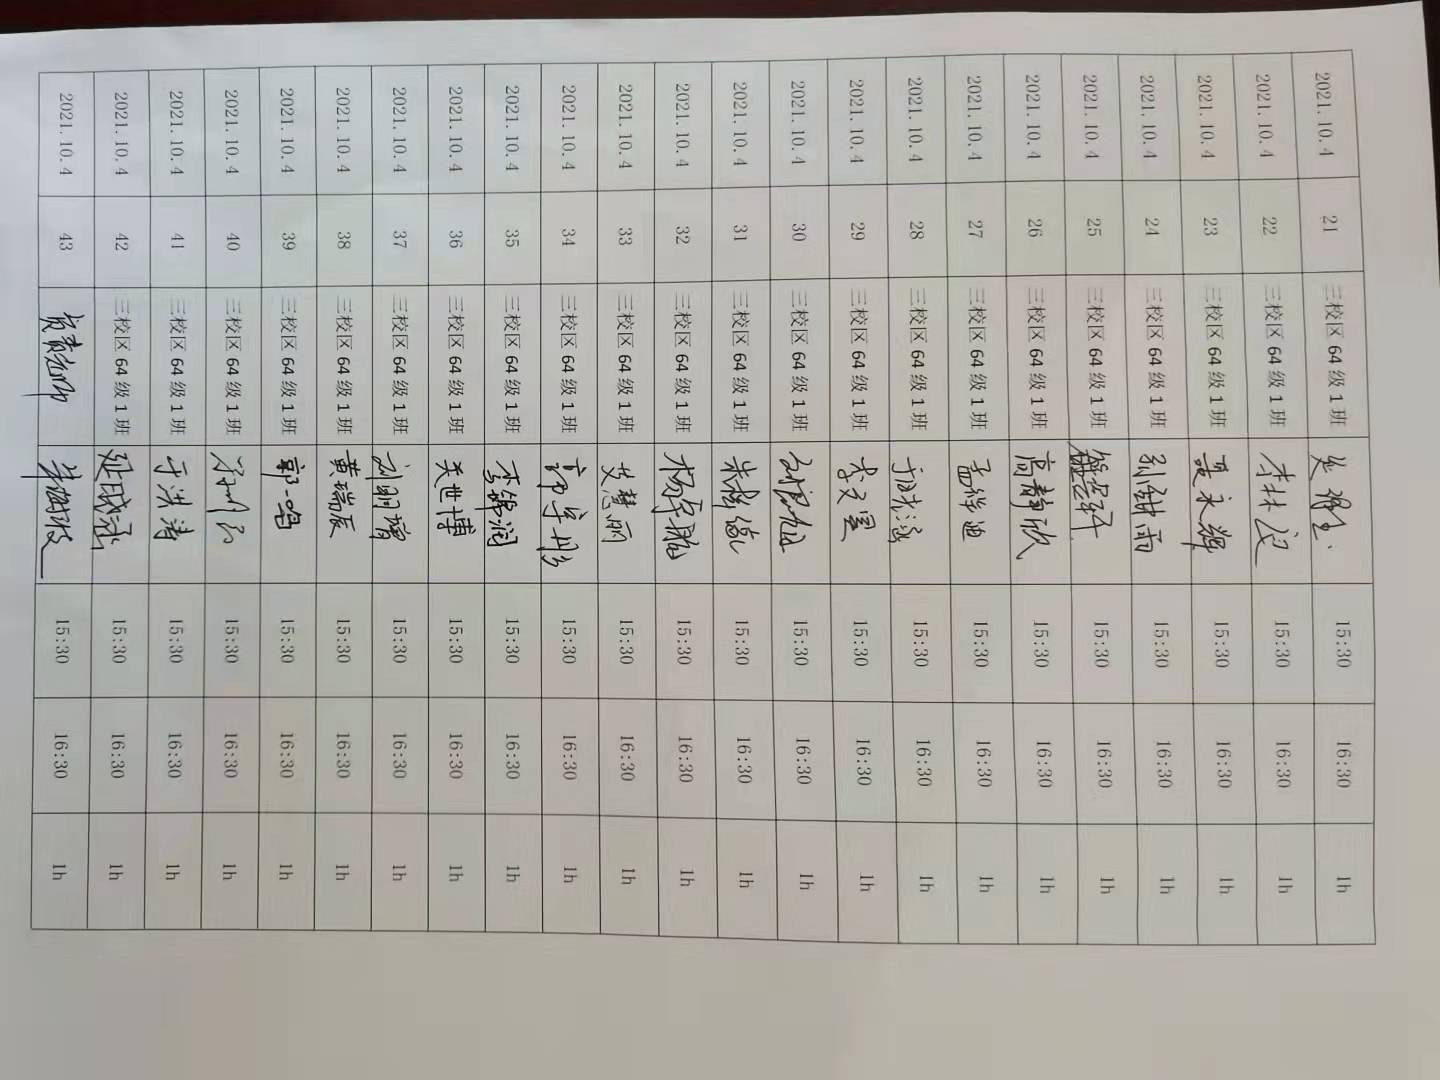 2021.10.4 21 三校区 64 级 1 班 15:30 16:30 1h
2021.10.4 22 三校区 64 级 1 班 15:30 16:30 1h
2021.10.4 23 三校区 64 级 1 班 聂永辉 15:30 16:30 1h
2021.10.4 24 三校区 64 级 1 班 15:30 16:30 1h
2021.10.4 25 三校区 64 级 1 班 15:30 16:30 1h
2021.10.4 26 三校区 64 级 1 班 高静欣 15:30 16:30 1h
2021.10.4 27 三校区 64 级 1 班 孟祥迪 15:30 16:30 1h
2021.10.4 28 三校区 64 级 1 班 15:30 16:30 1h
2021.10.4 29 三校区 64 级 1 班 15:30 16:30 1h
2021.10.4 30 三校区 64 级 1 班 15:30 16:30 1h
2021.10.4 31 三校区 64 级 1 班 15:30 16:30 1h
2021.10.4 32 三校区 64 级 1 班 15:30 16:30 1h
2021.10.4 33 三校区 64 级 1 班 艾慧丽 15:30 16:30 1h
2021.10.4 34 三校区 64 级 1 班 15:30 16:30 1h
2021.10.4 35 三校区 64 级 1 班 李锦润 15:30 16:30 1h
2021.10.4 36 三校区 64 级 1 班 关世博 15:30 16:30 1h
2021.10.4 37 三校区 64 级 1 班 刘明增 15:30 16:30 1h
2021.10.4 38 三校区 64 级 1 班 黄瑞辰 15:30 16:30 1h
2021.10.4 39 三校区 64 级 1 班 郭一鸣 15:30 16:30 1h
2021.10.4 40 三校区 64 级 1 班 15:30 16:30 1h
2021.10.4 41 三校区 64 级 1 班 于洪涛 15:30 16:30 1h
2021.10.4 42 三校区 64 级 1 班 延成丞 15:30 16:30 1h
2021.10.4 43 负责老师 15:30 16:30 1h